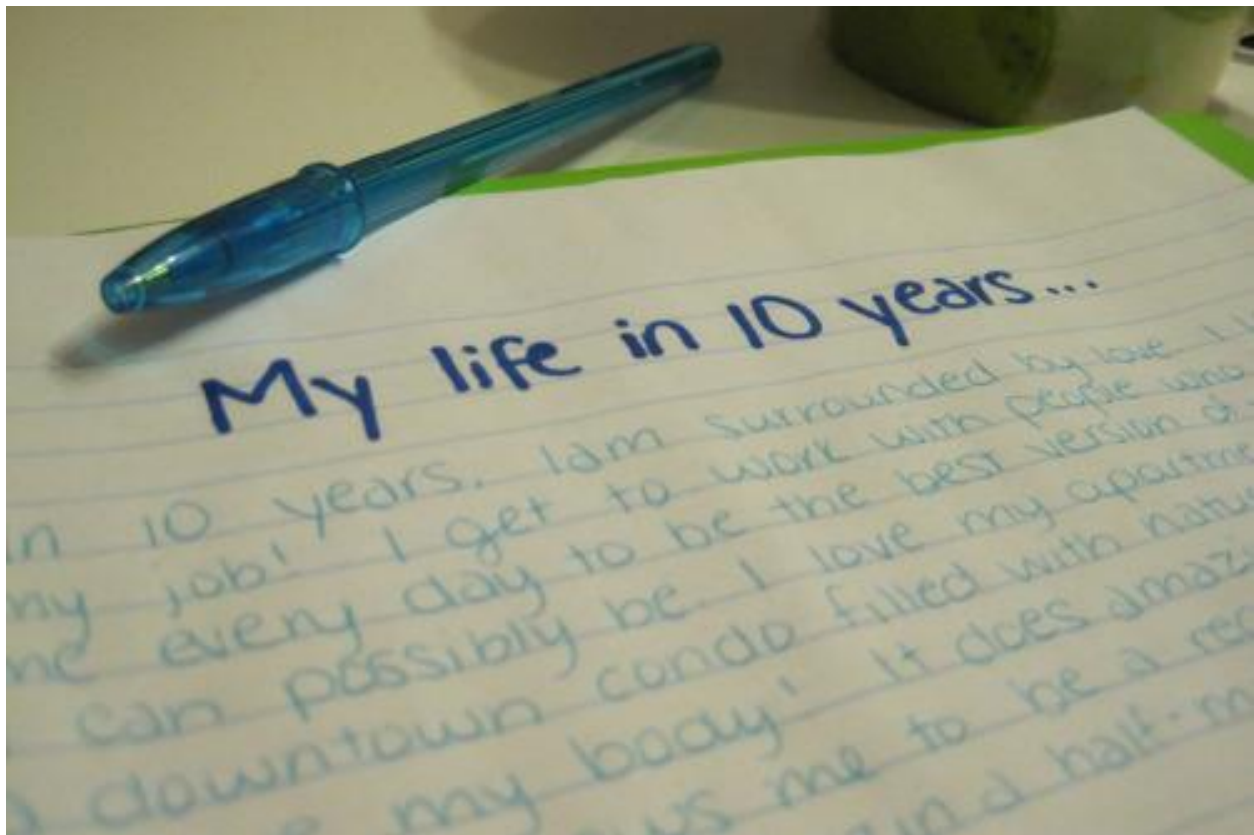 My life in 10 years...
in 10 years. I am surrounded by love. I
my job! I get to work with people who
me every day to be the best version of
can possibly be. I love my apartme
downtown condo filled with natu
my body! It does amazi
us me to be a rec
in a half-m